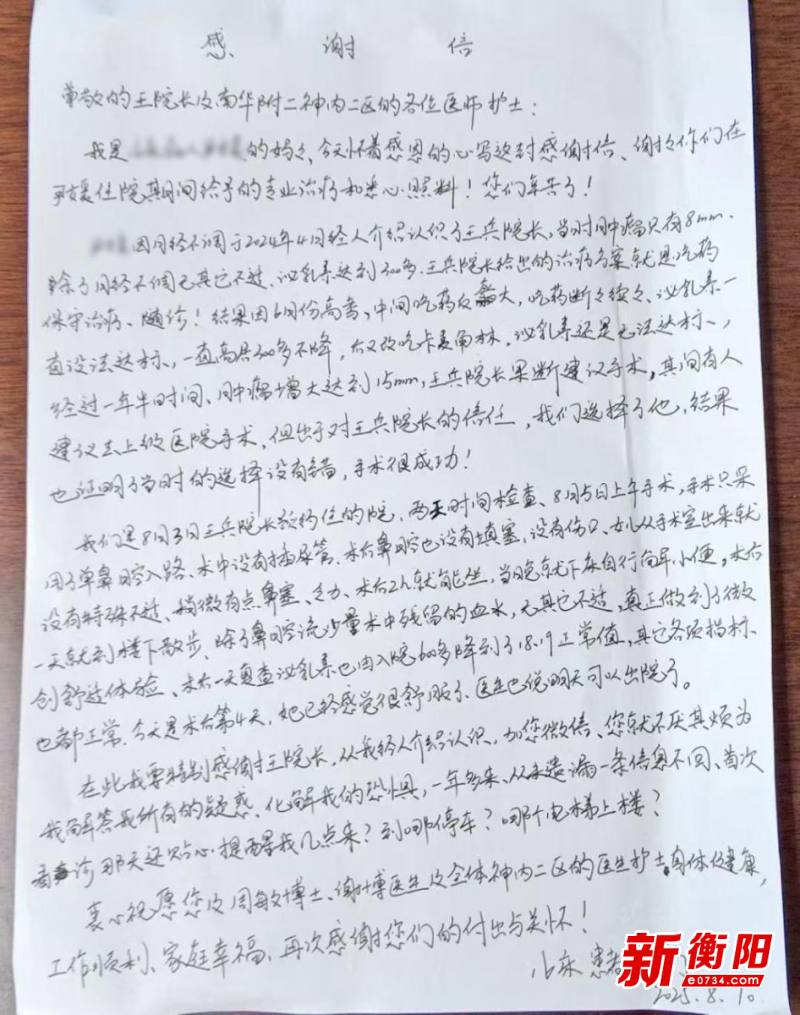 感 谢 信
尊敬的王院长及南华附二神内二区的各位医师护士:
我是 的妈々、今天怀着感恩的心写这封感谢信、谢々你们在
住院其期间给予的专业治疗和悉心照料!您们辛苦了!
因月经不调于2024年4月经人介绍认识了王兵院长,当时肿瘤只有8mm.
除了月经不调无其它不适、泌乳素达到300多.王兵院长给出的治疗方案就是吃药
保守治疗、随诊!结果因6月份高考,中间吃药反 大,吃药断々续々、泌乳素一
直没法达标、一直高居300多不降,后又改吃卡麦角林,泌乳素还是无法达标、,
经过一年半时间、肿瘤增大达到15mm,王兵院长果断建议手术,其间有人
建议去上级医院手术,但出于对王兵院长的信任,我们选择了他,结果
也证明了当时的选择没有错,手术很成功!
我们是8月3日王兵院长 的院,两天时间检查、8月5日上午手术,手术只采
用了单鼻腔入路、术中没有插尿管、术后鼻腔也没有填塞,没有伤口、女儿从手术室出来就
没有特殊不适、稍微有点鼻塞、乏力、术后2h就能坐,当晚就下床自行 小便,术后
一天就到楼下散步、除了鼻腔流少量术中残留的血水,无其它不适,真正做到了微
创舒适体验、术后一天复查泌乳素也由入院600多降到了18.19正常值,其它各项指标、
也都正常.今天是术后第4天,她已经感觉很舒服了、医生也说明天可以出院了。
在此我要特别感谢王院长,从我经人介绍认识,加您微信、您就不厌其烦为
我解答我所有的疑惑、化解我的恐惧,一年多来、从未遗漏一条信息不回、首次
看诊那天还贴心提醒我几点来?到哪停车?哪个电梯上楼?
衷心祝愿您及周敏博士、谢博医生及全体神内二区的医生护士身体健康,
工作顺利、家庭幸福、再次感谢您们的付出与关怀!
床 患者
2025.8.10
新衡阳
e0734.com